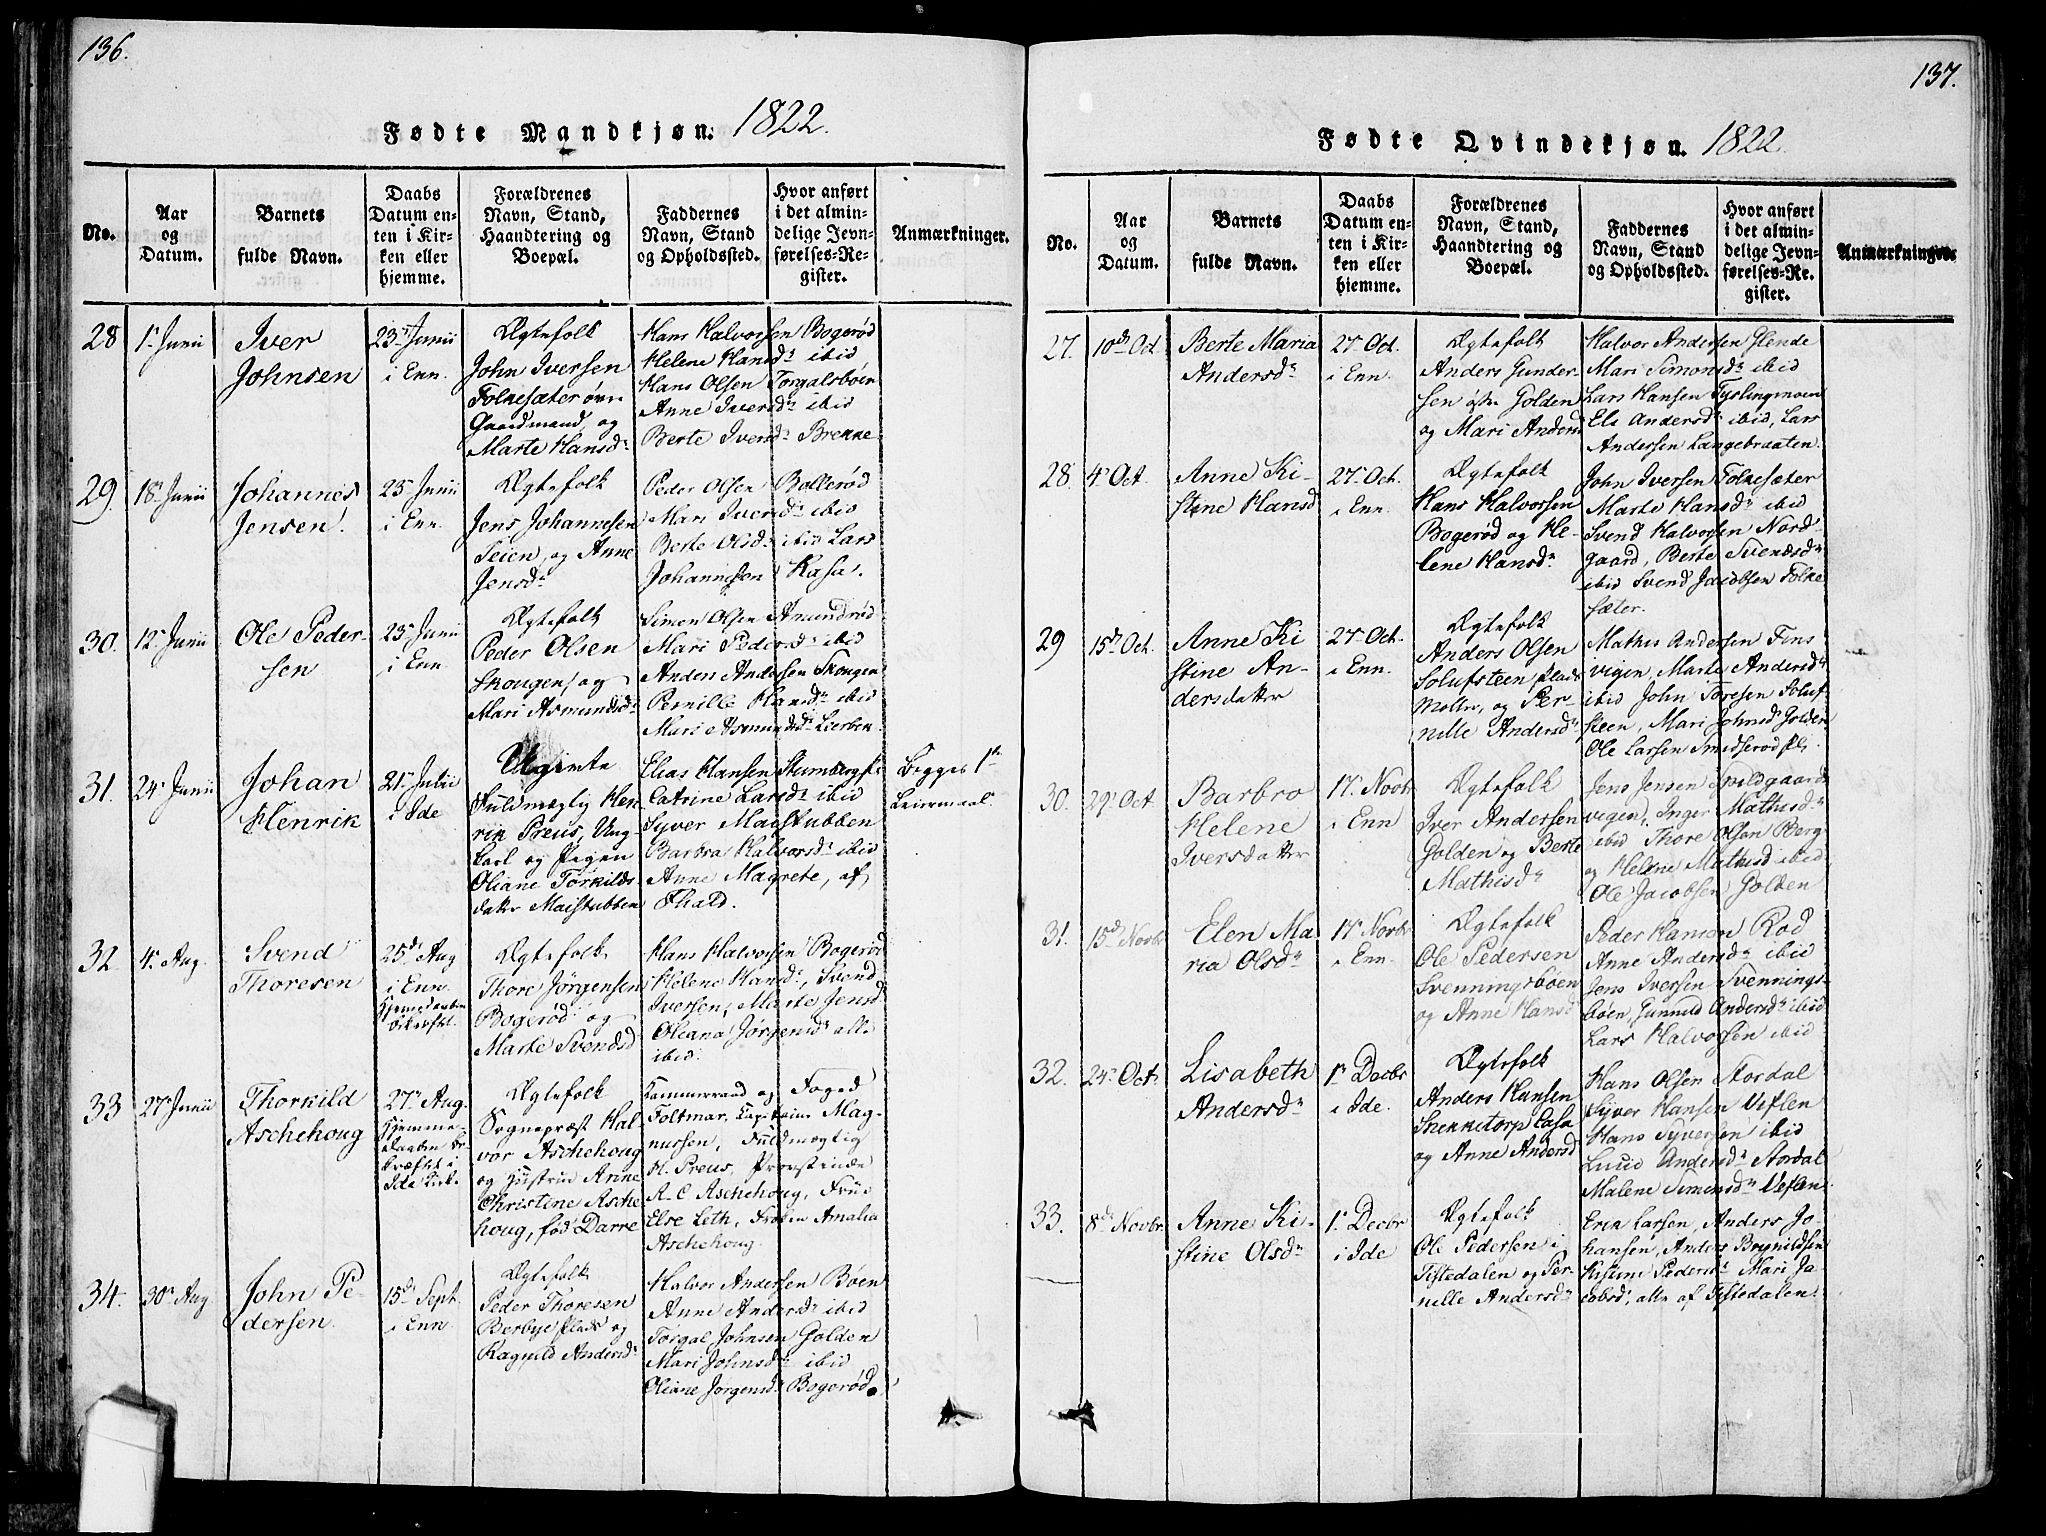 136.
Fødte Mandkjøn. 1822.
No.
Aar
og
Datum.
Barnets
fulde Navn.
Daabs
Datum en-
ten i Kir-
ken eller
hjemme.
Forældrenes
Navn, Stand,
Haandtering og
Boepæl.
Faddernes
Navn, Stand
og Opholdssted.
Hvor anført
i det almin-
delige Jevn-
førelses-Re-
gister.
Anmærkninger.
28
1. Junii
Iver
Johnsen
23. Junii
i Enn.
Ægtefolk
John Iversen
Folkesæter øvre
Gaardmand, og
Marte Hansd.
Hans Halvorsen Bogerød
Helene Hansd. ibid
Hans Olsen Torgalsbøen
Anne Iversd. ibid
Berte Iversd. Brekke
29.
18. Junii
Johannes
Jensen.
23. Junii
i Enn.
Ægtefolk
Jens Johannesen
Seien, og Anne
Jensd.
Peder Olsen Bollerød
Mari Iversd. ibid
Berte Olsd. ibid Lars
Johannesen Kasa.
30.
12. Junii
Ole Peder-
sen
23. Junii
i Enn.
Ægtefolk
Peder Olsen
Skougen, og
Mari Asmundsd.
Simon Olsen Amundrød
Mari Pedersd. ibid
Anders Andersen Skougen
Pernille Hansd. ibid
Mari Asmundsd. Lierben
31.
24. Junii
Johan
Henrik
21. Julii
i Ide
Ugivte
Fuldmægtig Hen-
rik Preus, Ung-
karl og Pigen
Oliane Torkilds-
datter Maistubben
Elias Hansen
Catrine Larsd. ibid
Syver Maistubben
Barbra Halvorsd. ibid
Anne Magrete, af
Fhald.
Begges 1te
Leiermaal.
32.
4. Aug.
Svend
Thoresen
25de Aug
i Enn.
Hjemedaaben
Ægtefolk
Thore Jørgensen
Bogerød og
Marte Svendsd
Hans Halvorsen Bogerød
Helene Hansd., Svend
Iversen, Marte Jensd.
Oliana Jørgensd. alle
ibid.
33
27. Junii
Thorkild
Aschehoug
27. Aug.
Hjemme-
Daaben be-
kræftet i
Ide Kirk.
Ægtefolk
Sognepræst Hal-
vor Aschehoug
og Hustrue Anne
Christine Asche-
houg, fød Darre
Kammerraad og Foged
Foltmar, Capitain Mag-
nussen, Fuldmægtig
H. Preus, Provstinde
A. C. Aschehoug, Frue
Else Leth, Frøken Amalia
Aschehoug.
34.
30. Aug
John Pe-
dersen.
15de Sept.
i Enn
Ægtefolk
Peder Thoresen
Berbye Plads og
Ragnild Andersd.
Halvor Andersen Bøen
Anne Andersd. ibid
Torgal Johnsen Golden
Mari Johnsd. ibid
Oliane Jørgensd. Bogerød.
137.
Fødte Qvindekjøn. 1822.
No.
Aar
og
Datum.
Barnets
fulde Navn.
Daabs
Datum en-
ten i Kir-
ken eller
hjemme.
Forældrenes
Navn, Stand,
Haandtering og
Boepæl.
Faddernes
Navn, Stand
og Opholdssted.
Hvor anført
i det almin-
delige Jevn-
førelses-Re-
gister.
Anmærkninger.
27.
10de Oct.
Berte Maria
Andersd.
27. Oct.
i Enn.
Ægtefolk
Anders Gunder-
sen østre Golden
og Mari Andersd
Halvor Andersen Hende
Mari Simonsd. ibid
Lars Hansen Tyslingmoen
Els Andersd. ibid, Lars
Andersen Langebraaten.
28.
4. Oct.
Anne Ki-
stine Hansd
27. Oct.
i Enn.
Ægtefolk
Hans Halvorsen
Bogerød og He-
lene Hansd.
John Iversen Folkesæter
Marte Hansd. ibid
Svend Halvorsen Nord-
gaard, Berte Svendsd.
ibid Svend Jacobsen Folke
sæter.
29
15de Oct.
Anne Ki
stine An-
dersdatter
27. Oct.
i Enn.
Ægtefolk
Anders Olsen
Solufsteen Plads
og Per-
nille Andersd.
Mathis Andersen Fins
vigen, Marte Andersd.
ibid John Toresen Soluf
steen, Mari Johnsd Golden
Ole Larsen Smidserød pl.
30.
29. Oct
Barbro
Helene
Iversdatter
17. Novbr
i Enn
Ægtefolk
Iver Andersen
Golden og Berte
Mathisd.
Jens Jensen
vigen, Inger Mathisd.
ibid Thore Olsen Berg
og Helene Mathisd ibid
Ole Jacobsen Golden
31.
15de Novbr
Elen Ma
ria Olsd.
17. Novbr
i Enn.
Ægtefolk
Ole Pedersen
Svenningsbøen
og Anne Hansd
Peder Hansen Rød
Anne Andersd. ibid
Jens Iversen Svennings-
bøen, Gunnild Andersd. ibid
Lars Halvorsen ibid
32.
24. Oct.
Lisabeth
Andersd.
1. Decbr
i Ide.
Ægtefolk
Anders Hansen
Snekketorp Casa
og Anne Andersd
Hans Olsen Stordal
Syver Hansen Veslen
Hans Syversen ibid
Lucie Andersd. Stordal
Malene Simensd. Veslen.
33.
8de Novbr.
Anne Ki-
stine Olsd.
1. Decbr
i Ide
Ægtefolk
Ole Pedersen i
Tistedalen og Per-
nille Andersd.
Erik Larsen, Anders Jo-
hansen, Anders Brynildsen
Kistine Pedersd. Mari Ja-
cobsd, alle af Tistedalen.